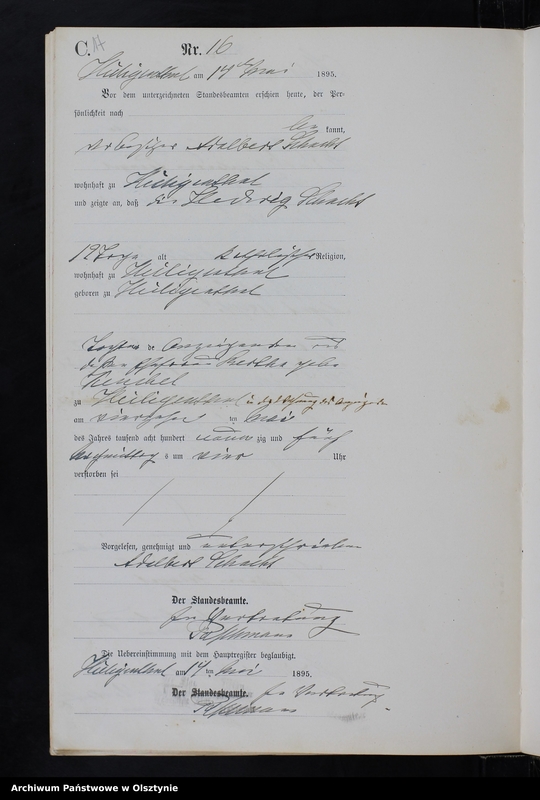 C.
Nr. 16
Heiligenthal am 14 ten Mai 1895.
Vor dem unterzeichneten Standesbeamten erschien heute, der Per-
sönlichkeit nach
be kannt,
Adalbert Schacht
wohnhaft zu Heiligenthal
und zeigte an, daß die Hedwig Schacht
12 Tage alt katholischer Religion,
wohnhaft zu Heiligenthal
geboren zu Heiligenthal
Tochter de Anzeigenden und
dessen Ehefrau Bertha geb.
zu Heiligenthal in der Wohnung des Anzeigenden
am vierzehnten ten Mai
des Jahres tausend acht hundert neun zig und fünf
Nachmittag s um vier Uhr
verstorben sei
Vorgelesen, genehmigt und unterschrieben
Adalbert Schacht
Der Standesbeamte.
In Vertretung
Die Uebereinstimmung mit dem Hauptregister beglaubigt.
Heiligenthal am 14 ten Mai 1895.
Der Standesbeamte. In Vertretung
Archiwum Państwowe w Olsztynie